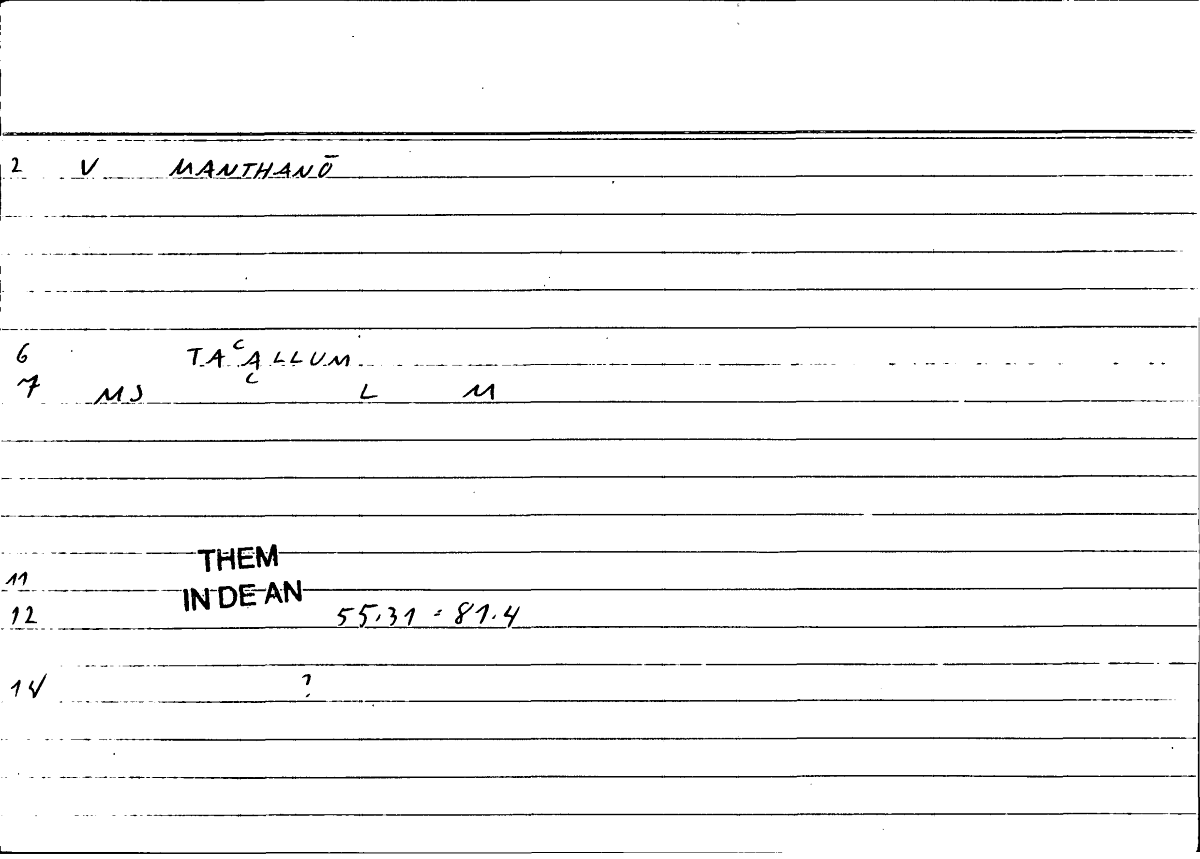 2 V MANTHANŌ
6 TAᶜALLUM
7 MS C L M
THEM
11
IN DE AN
12 55.31 : 81.4
14 ?